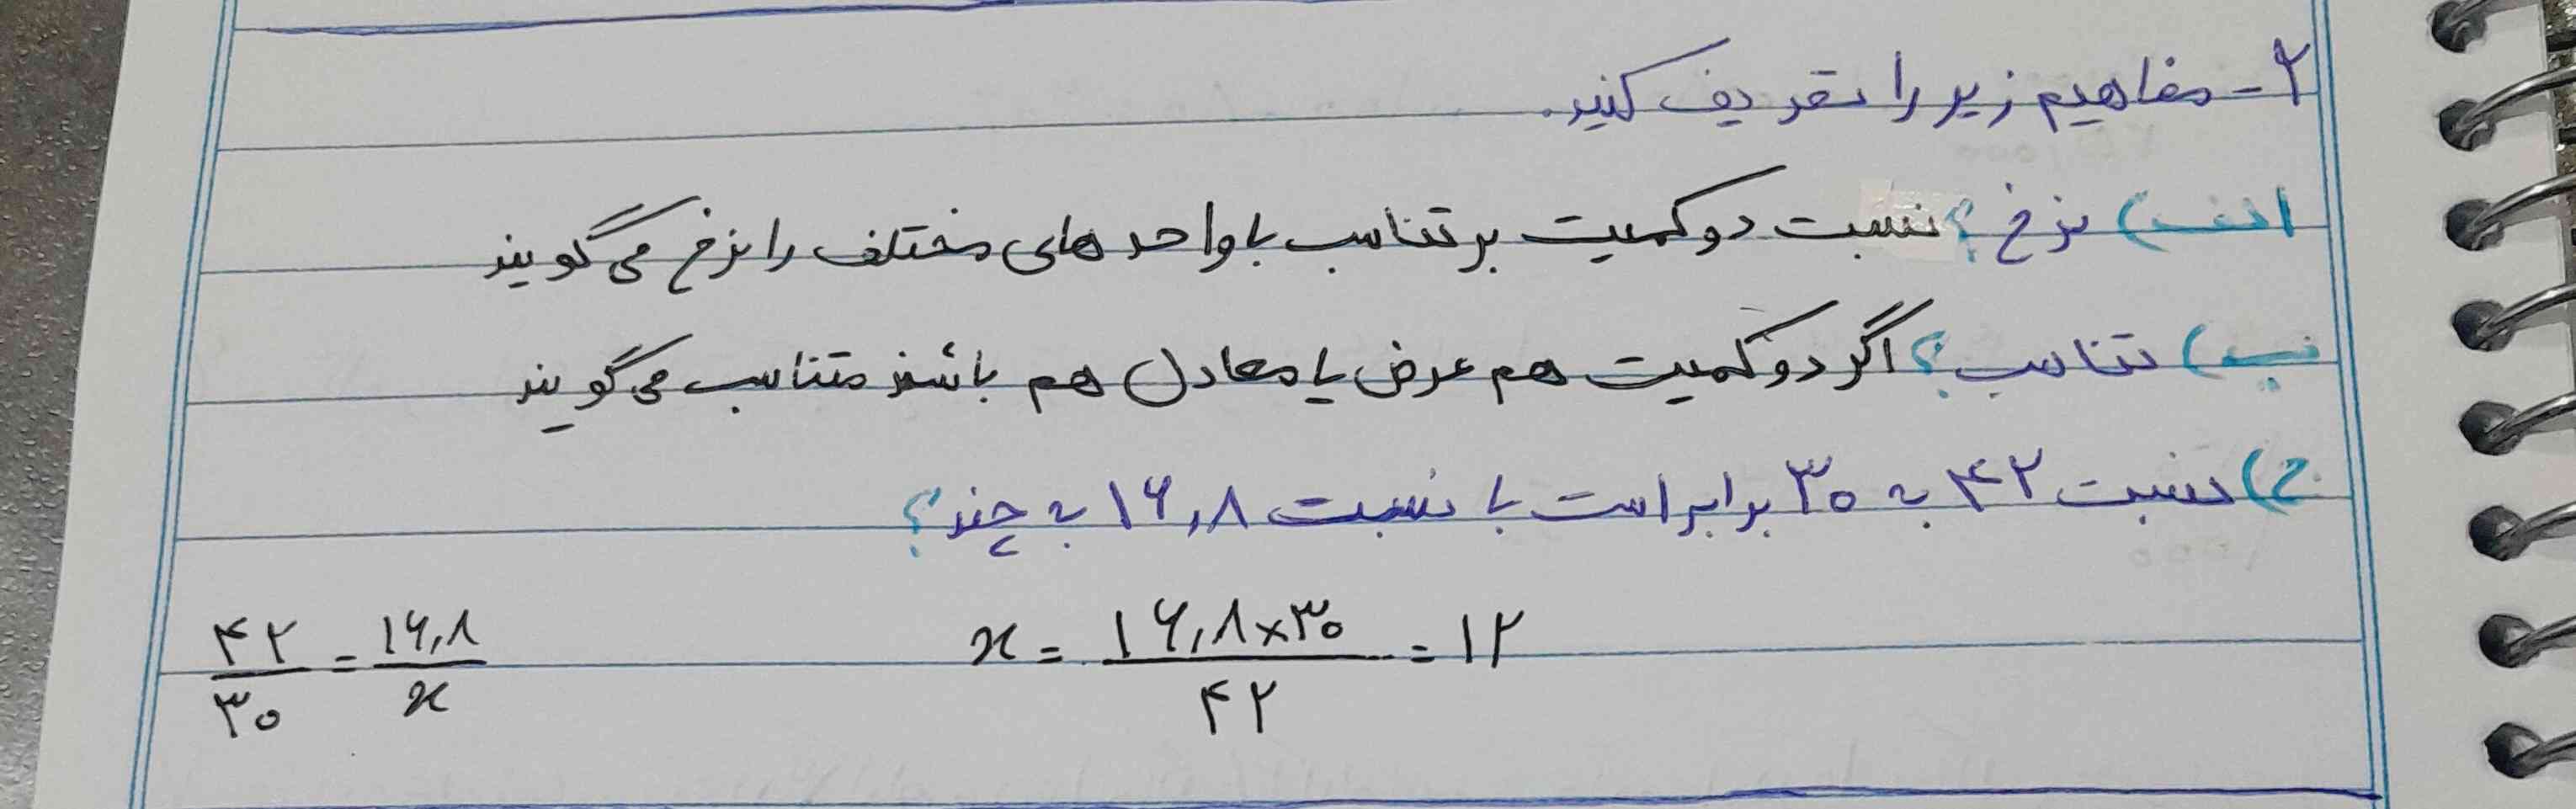 ۲- مفاهیم زیر را تعریف کنید.
الف) نرخ؟ نسبت دو کمیت بر تناسب با واحد های مختلف را نرخ می گویند
ب) تناسب؟ اگر دو کمیت هم عرض یا معادل هم باشند متناسب می گویند
ج) نسبت ۴۲ به ۳۰ برابر است با نسبت ۱۶,۸ به چند؟
۴۲/۳۰ = ۱۶,۸/x x = ۱۶,۸×۳۰/۴۲ = ۱۲